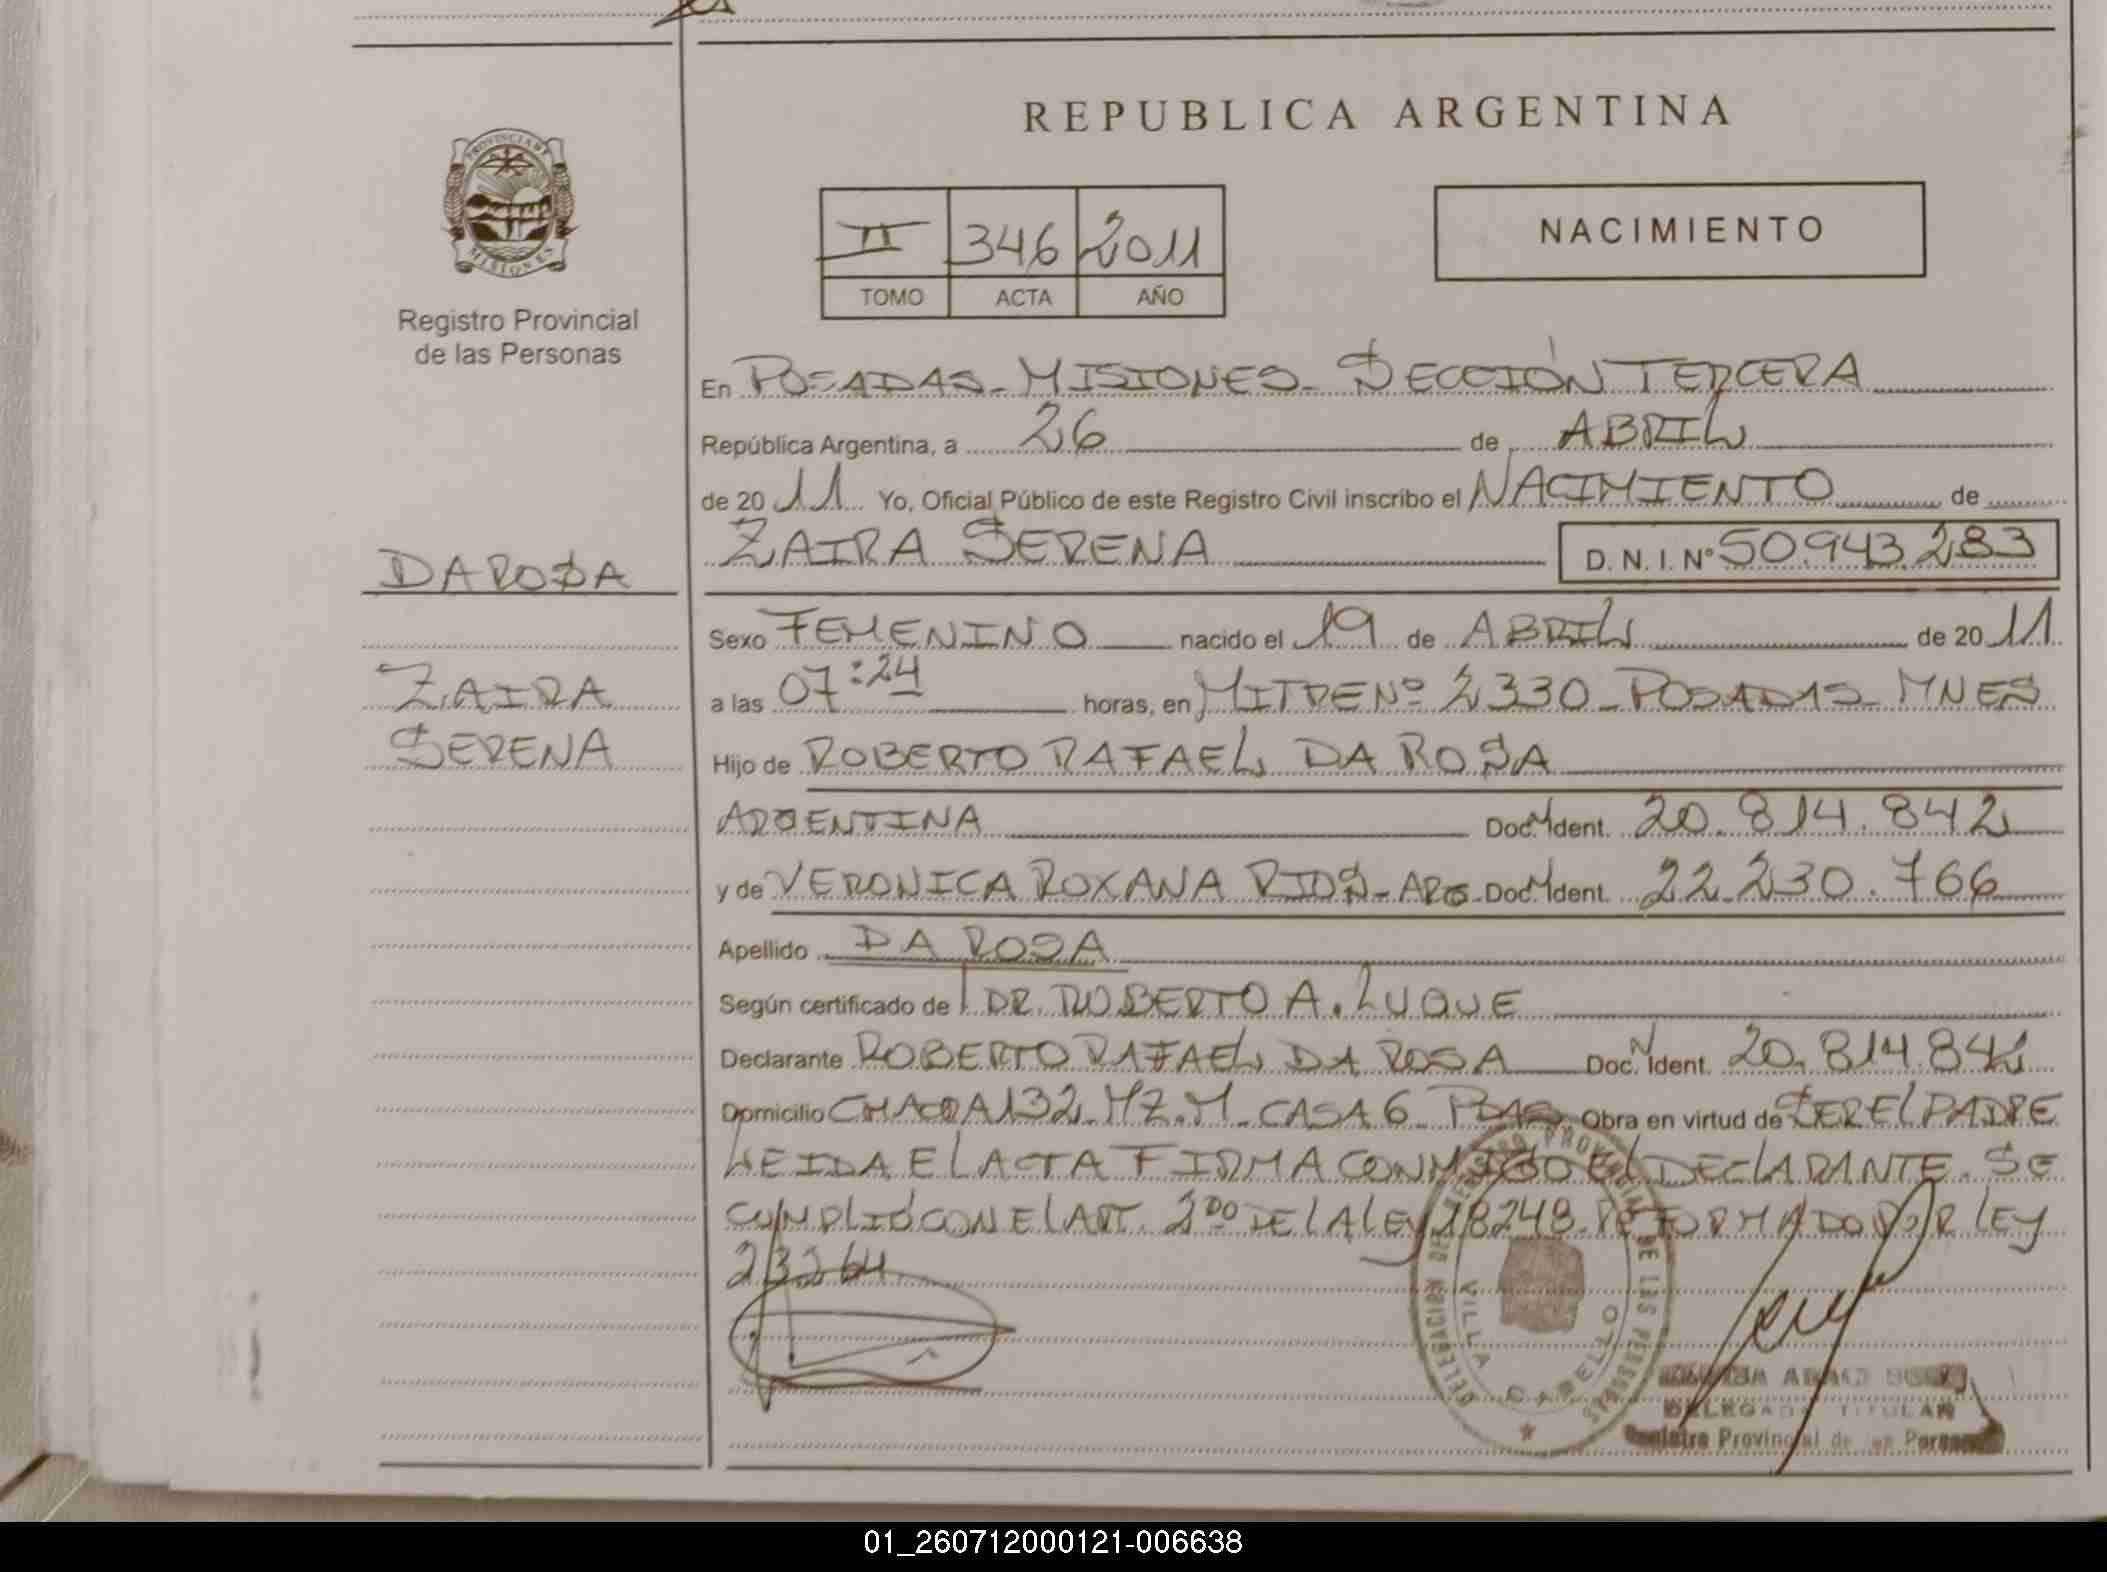 REPUBLICA ARGENTINA
PROVINCIA DE MISIONES
Registro Provincial
de las Personas
II 346 2011
TOMO ACTA AÑO
NACIMIENTO
En POSADAS - MISIONES - SECCIÓN TERCERA
República Argentina, a 26 de ABRIL
de 2011 Yo, Oficial Público de este Registro Civil inscribo el NACIMIENTO de
ZAIRA SERENA D. N. I. Nº 50.943.283
DA ROSA
ZAIRA
SERENA
Sexo FEMENINO nacido el 19 de ABRIL de 2011
a las 07:24 horas, en MITRE Nº 2330 - POSADAS - MNES
Hijo de ROBERTO RAFAEL DA ROSA
ARGENTINA Doc. N Ident. 20.814.842
y de VERONICA ROXANA RIOS - ARG. Doc. N Ident. 22.230.766
Apellido DA ROSA
Según certificado de DR. ROBERTO A. LUQUE
Declarante ROBERTO RAFAEL DA ROSA Doc. N Ident. 20.814.842
Domicilio CHACRA 132 - MZ. M - CASA 6 - PDAS Obra en virtud de SER EL PADRE
LEIDA EL ACTA FIRMA CONMIGO EL DECLARANTE. SE
CUMPLIÓ CON EL ART. 2DO DE LA LEY 18248. REFORMADO POR LEY
23264
DELEGACION DEL REGISTRO PROVINCIAL DE LAS PERSONAS
VILLA CABELLO
DELEGADA TITULAR
Registro Provincial de las Personas
01_260712000121-006638